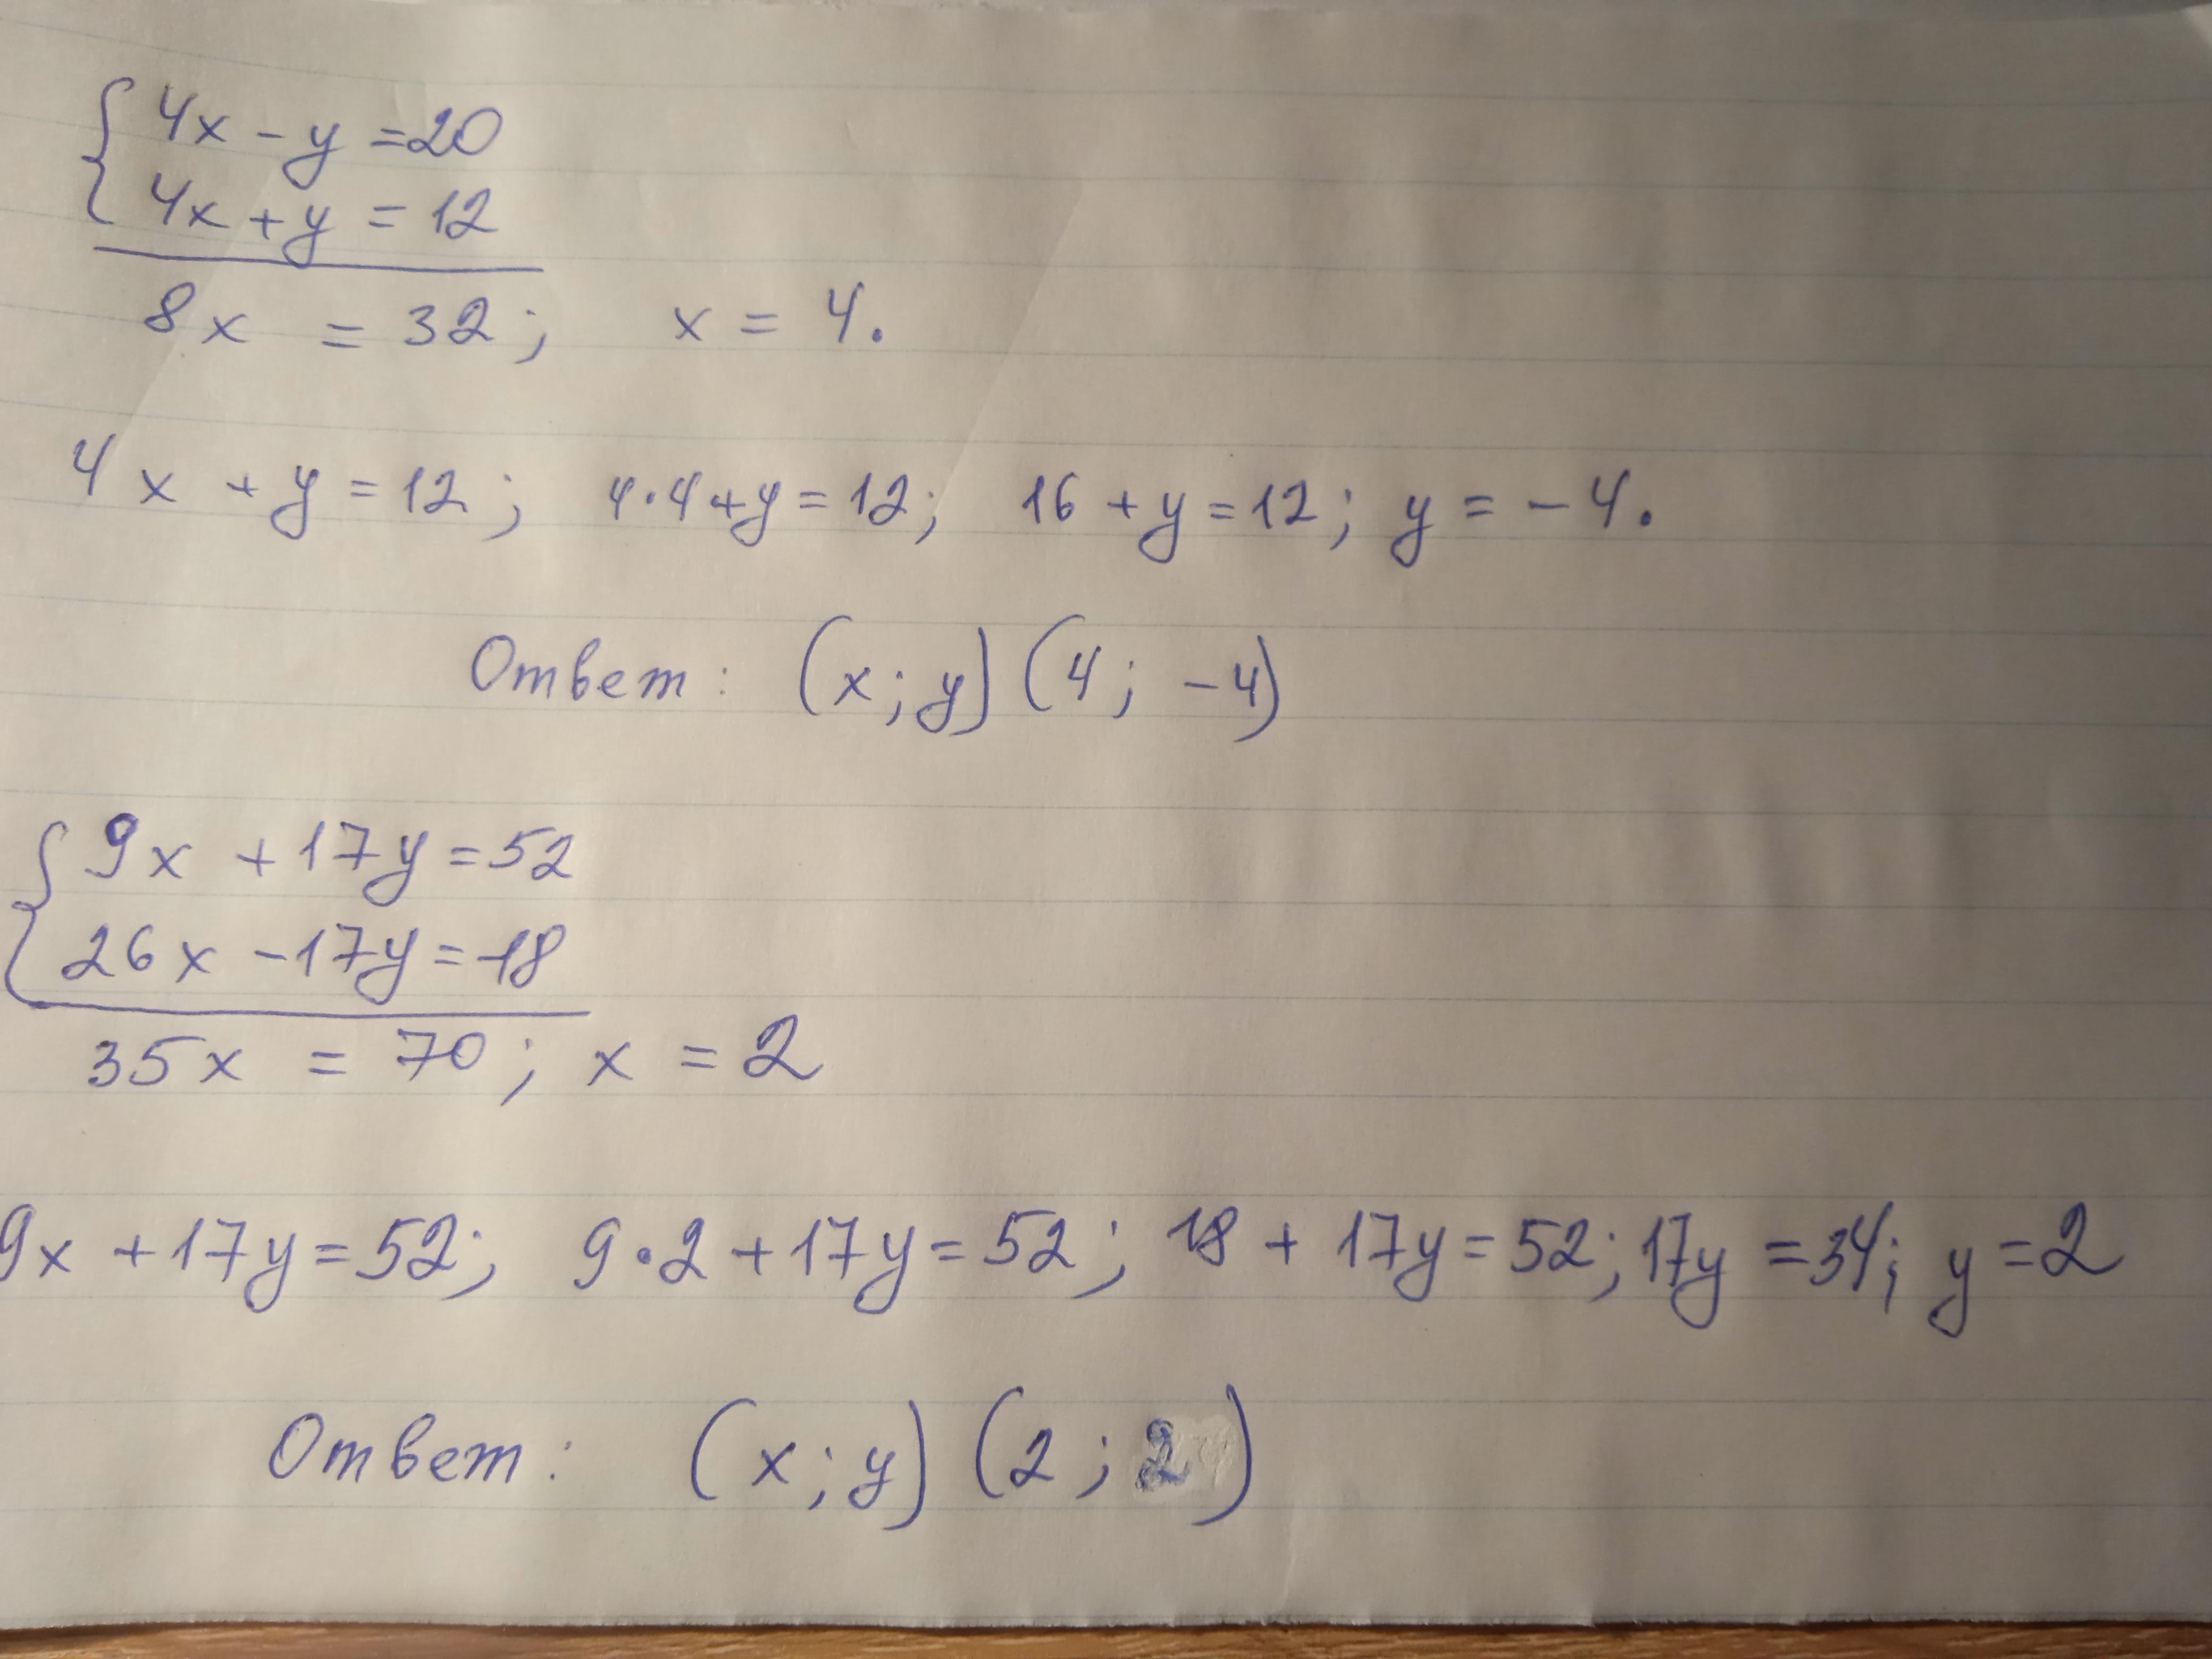 4x - y = 20
4x + y = 12
8x = 32; x = 4.
4x + y = 12; 4·4 + y = 12; 16 + y = 12; y = -4.
Ответ: (x; y) (4; -4)
9x + 17y = 52
26x - 17y = 18
35x = 70; x = 2
9x + 17y = 52; 9·2 + 17y = 52; 18 + 17y = 52; 17y = 34; y = 2
Ответ: (x; y) (2; 2)